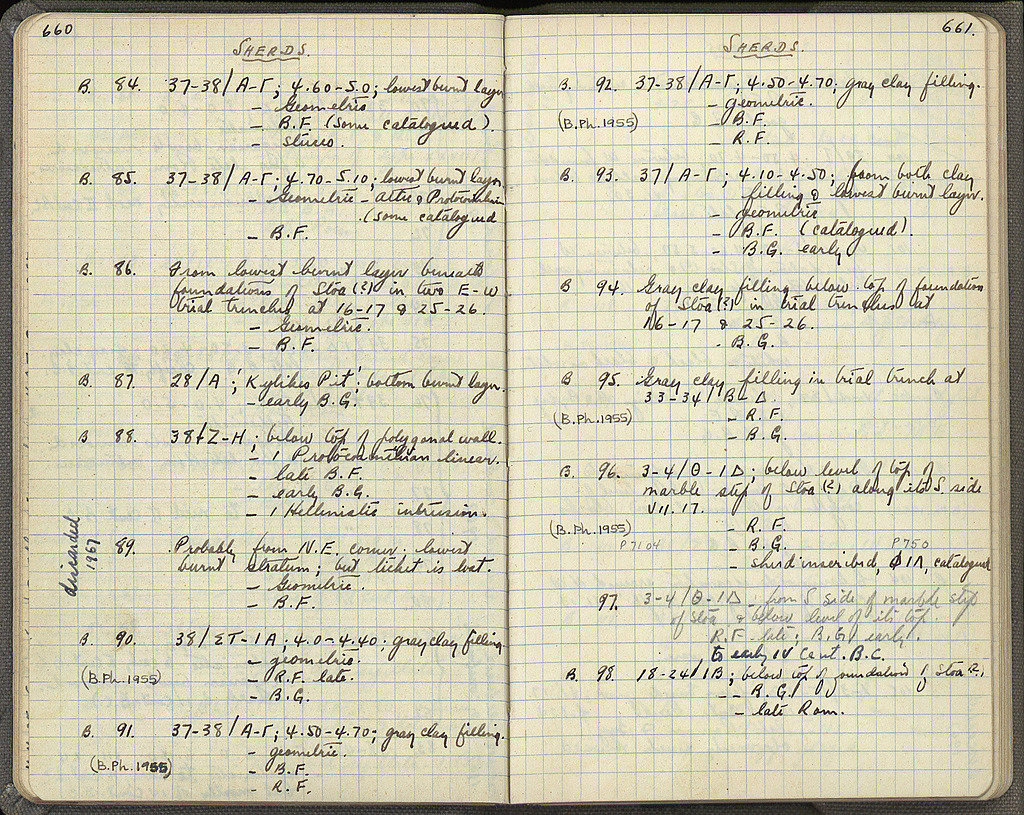 660
SHERDS.
B. 84. 37-38/A-Γ; 4.60-5.0; lowest burnt layer
- Geometric
- B.F. (some catalogued).
- stucco.
B. 85. 37-38/A-Γ; 4.70-5.10; lowest burnt layer
- Geometric - Attic & Protocorinthian
(some catalogued
- B.F.
B. 86. From lowest burnt layer beneath
foundations of Stoa (?) in two E-W
trial trenches at 16-17 & 25-26.
- Geometric.
- B.F.
B. 87. 28/A; 'Kylikes Pit'; bottom burnt layer.
- early B.G.
B 88. 38/Z-H; below top of polygonal wall.
- 1 Protocorinthian linear.
- late B.F.
- early B.G.
- 1 Hellenistic intrusion.
discarded
1967
89. Probably from N.E. corner: lowest
burnt stratum; but ticket is lost.
- Geometric.
- B.F.
B. 90. 38/ΣT-1A; 4.0-4.40; gray clay filling.
- geometric.
(B.Ph.1955) - R.F. late.
- B.G.
B. 91. 37-38/A-Γ; 4.50-4.70; gray clay filling.
- geometric.
(B.Ph.1955) - B.F.
- R.F.
661.
SHERDS.
B. 92. 37-38/A-Γ; 4.50-4.70; gray clay filling.
- geometric.
(B.Ph.1955) - B.F.
- R.F.
B. 93. 37/A-Γ; 4.10-4.50; from both clay
filling & lowest burnt layer.
- geometric
- B.F. (catalogued).
- B.G. early
B 94. Gray clay filling below top of foundation
of Stoa (?) in trial trenches at
16-17 & 25-26.
- B.G.
B 95. Gray clay filling in trial trench at
33-34/B-Δ.
(B.Ph.1955) - R.F.
- B.G.
B. 96. 3-4/Θ-1Δ; below level of top of
marble step of Stoa (?) along its S. side
VII.17.
(B.Ph.1955) - R.F.
P7104 - B.G. P750
- sherd inscribed, catalogued
97. 3-4/Θ-1Δ - from S side of marble step
of Stoa & below level of its top.
R.F. late; B.G. early.
to early IV Cent. B.C.
B. 98. 18-24/1B; below top of foundation of Stoa (?),
- B.G.
- late Rom.